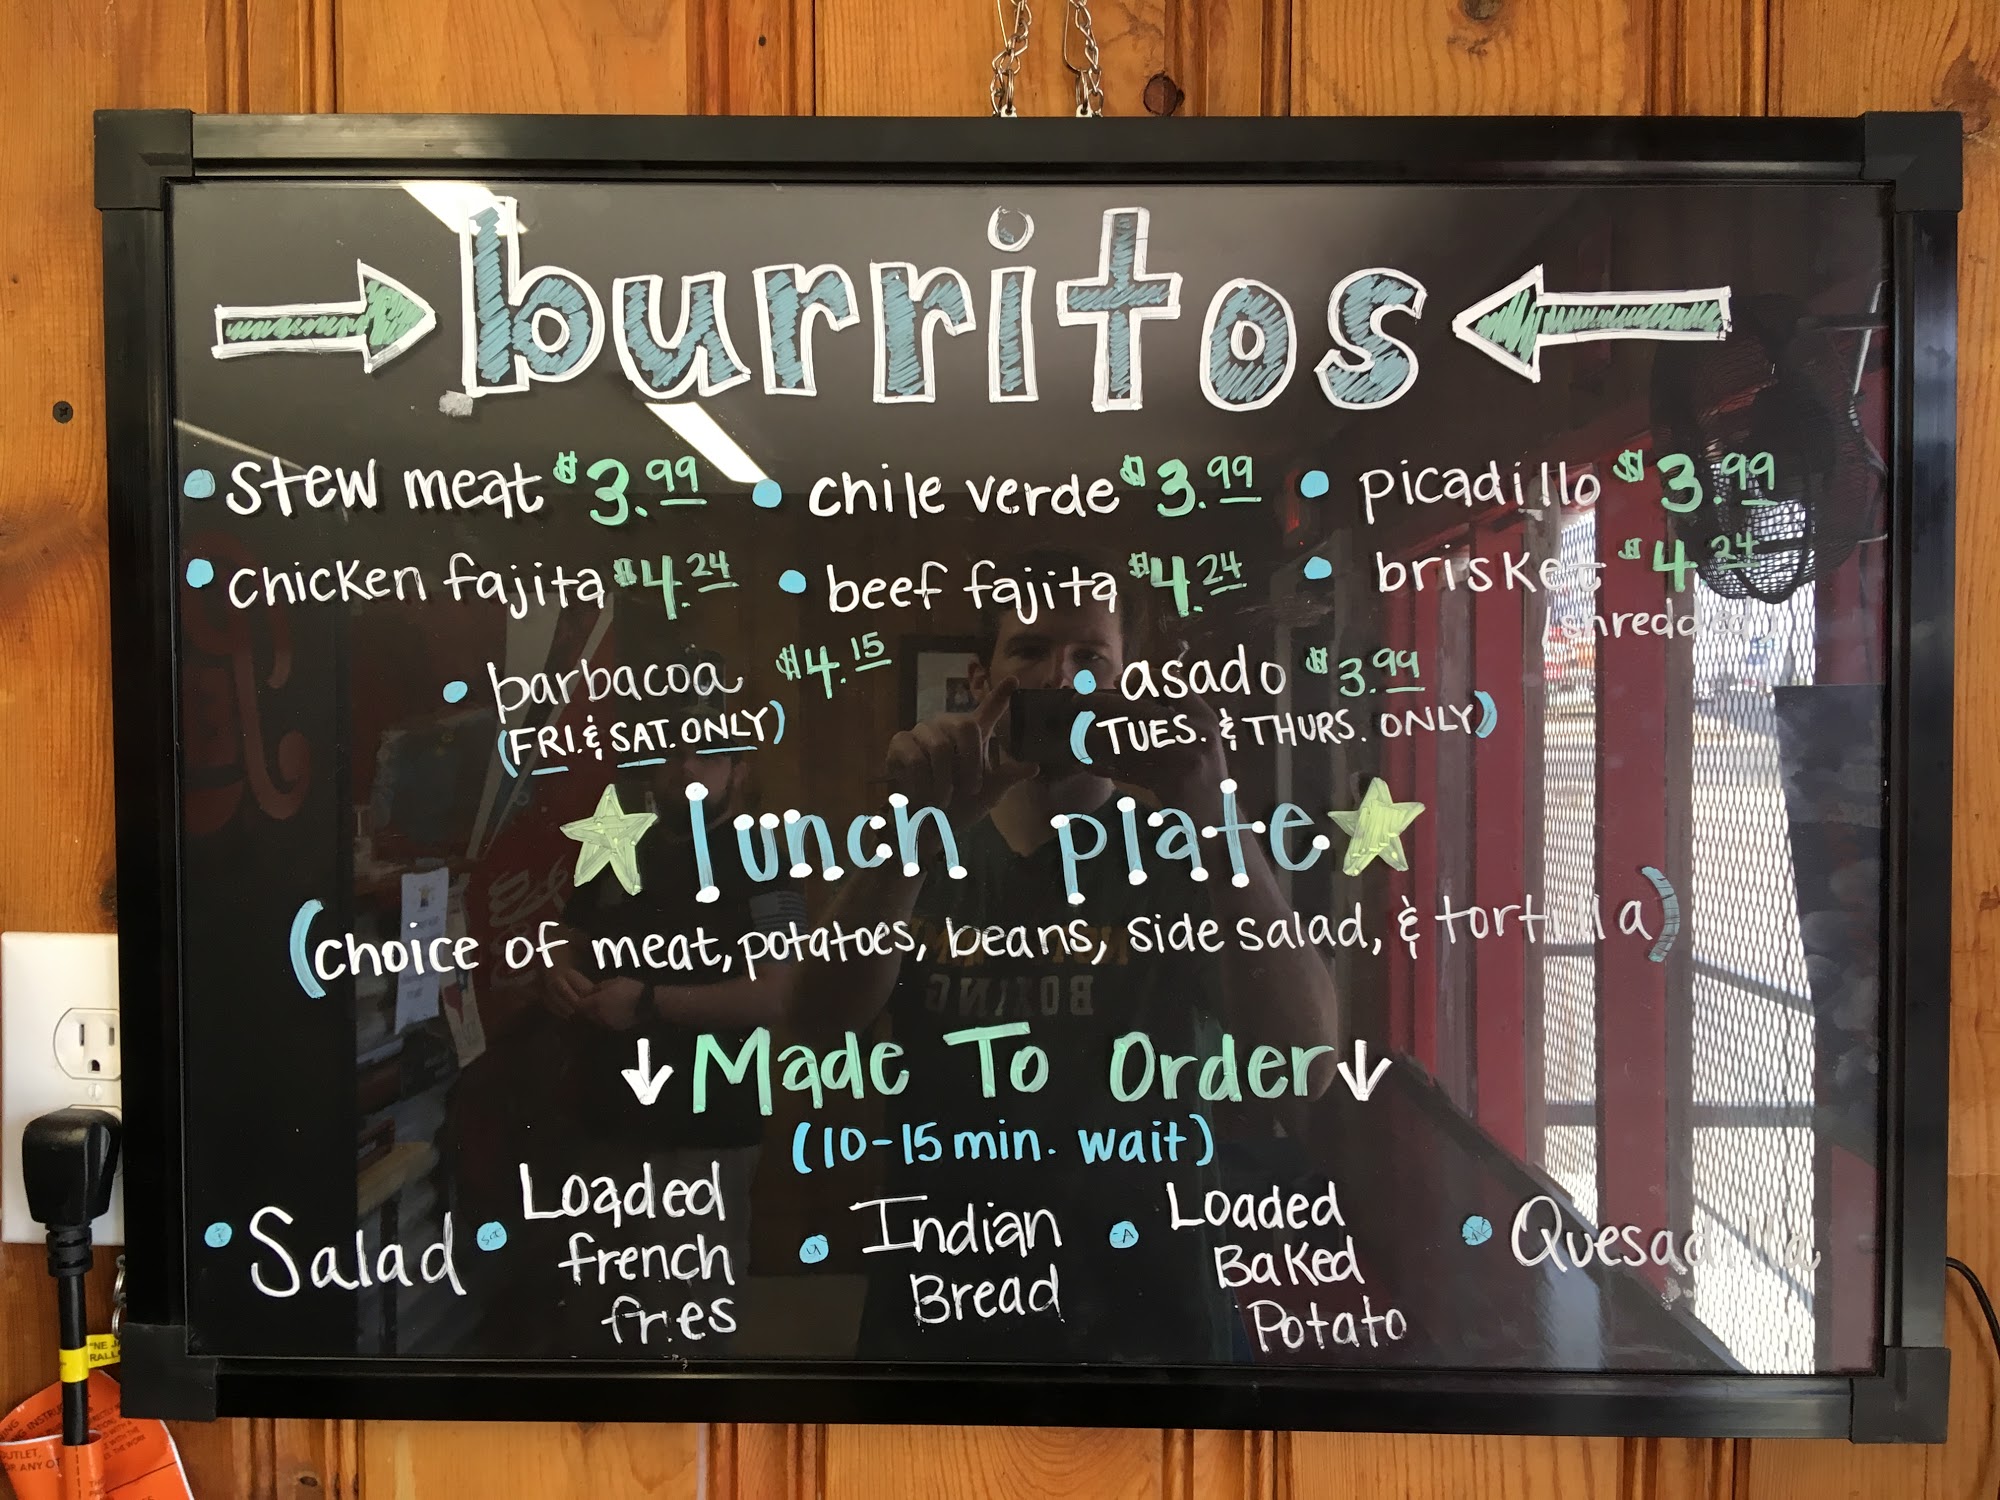 burritos
• stew meat $3.99 • chile verde $3.99 • picadillo $3.99
• chicken fajita $4.24 • beef fajita $4.24 • brisket $4.24
(shredded)
• barbacoa $4.15 • asado $3.99
(FRI. & SAT. ONLY) (TUES. & THURS. ONLY)
lunch plate
(choice of meat, potatoes, beans, side salad, & tortilla)
↓ Made To Order ↓
(10-15 min. wait)
• Salad • Loaded french fries • Indian Bread • Loaded Baked Potato • Quesadilla
BOXING